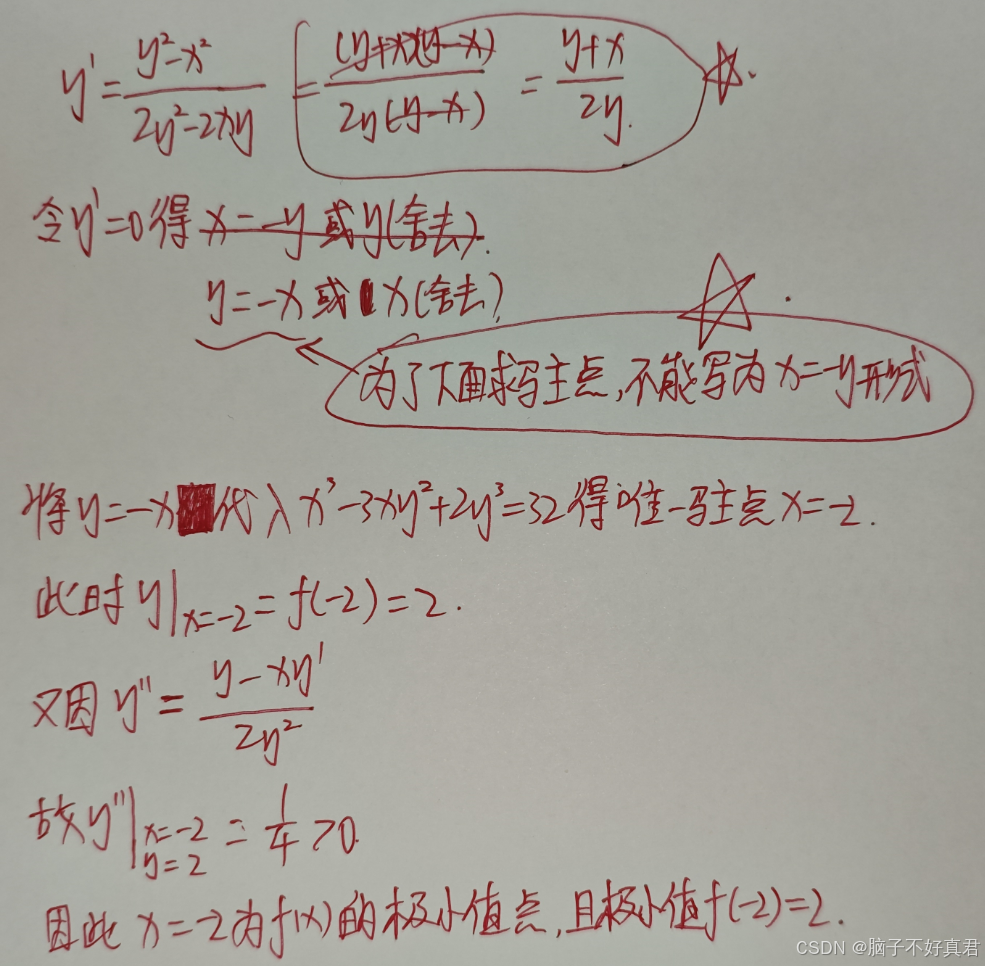 y'=\frac{y²-x²}{2y²-2xy} =\frac{(y+x)(y-x)}{2y(y-x)} = \frac{y+x}{2y}. ☆.
令y'=0得x=-y或y(舍去).
y=-x或x(舍去)
为了下面求驻点,不能写为x=-y形式
将y=-x代入x³-3xy²+2y³=32得唯一驻点x=-2.
此时y|x=-2=f(-2)=2.
又因y''=\frac{y-xy'}{2y²}
故y''|x=-2 y=2=\frac{1}{4}>0.
因此x=-2为f(x)的极小值点,且极小值f(-2)=2.
CSDN @脑子不好真君